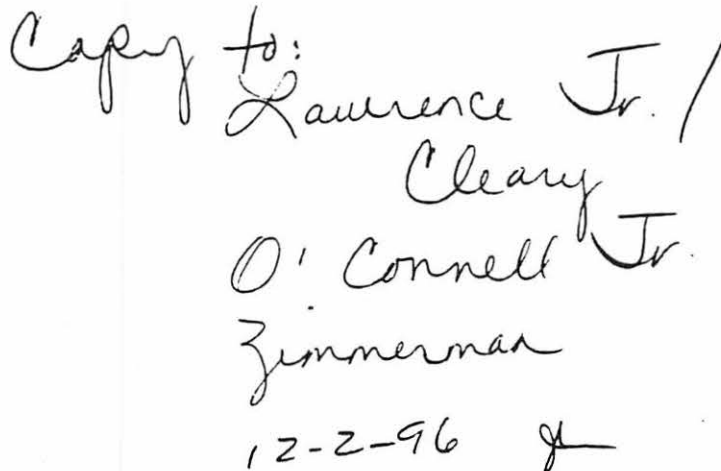 Copy to:
Lawrence Jr. /
Cleary
O'Connell Jr.
Zimmerman
12-2-96